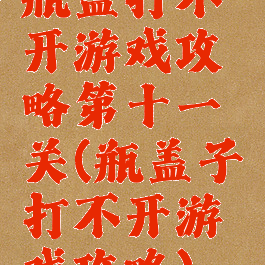 瓶盖打不
开游戏攻
略第十一
关(瓶盖子
打不开游
戏攻略)